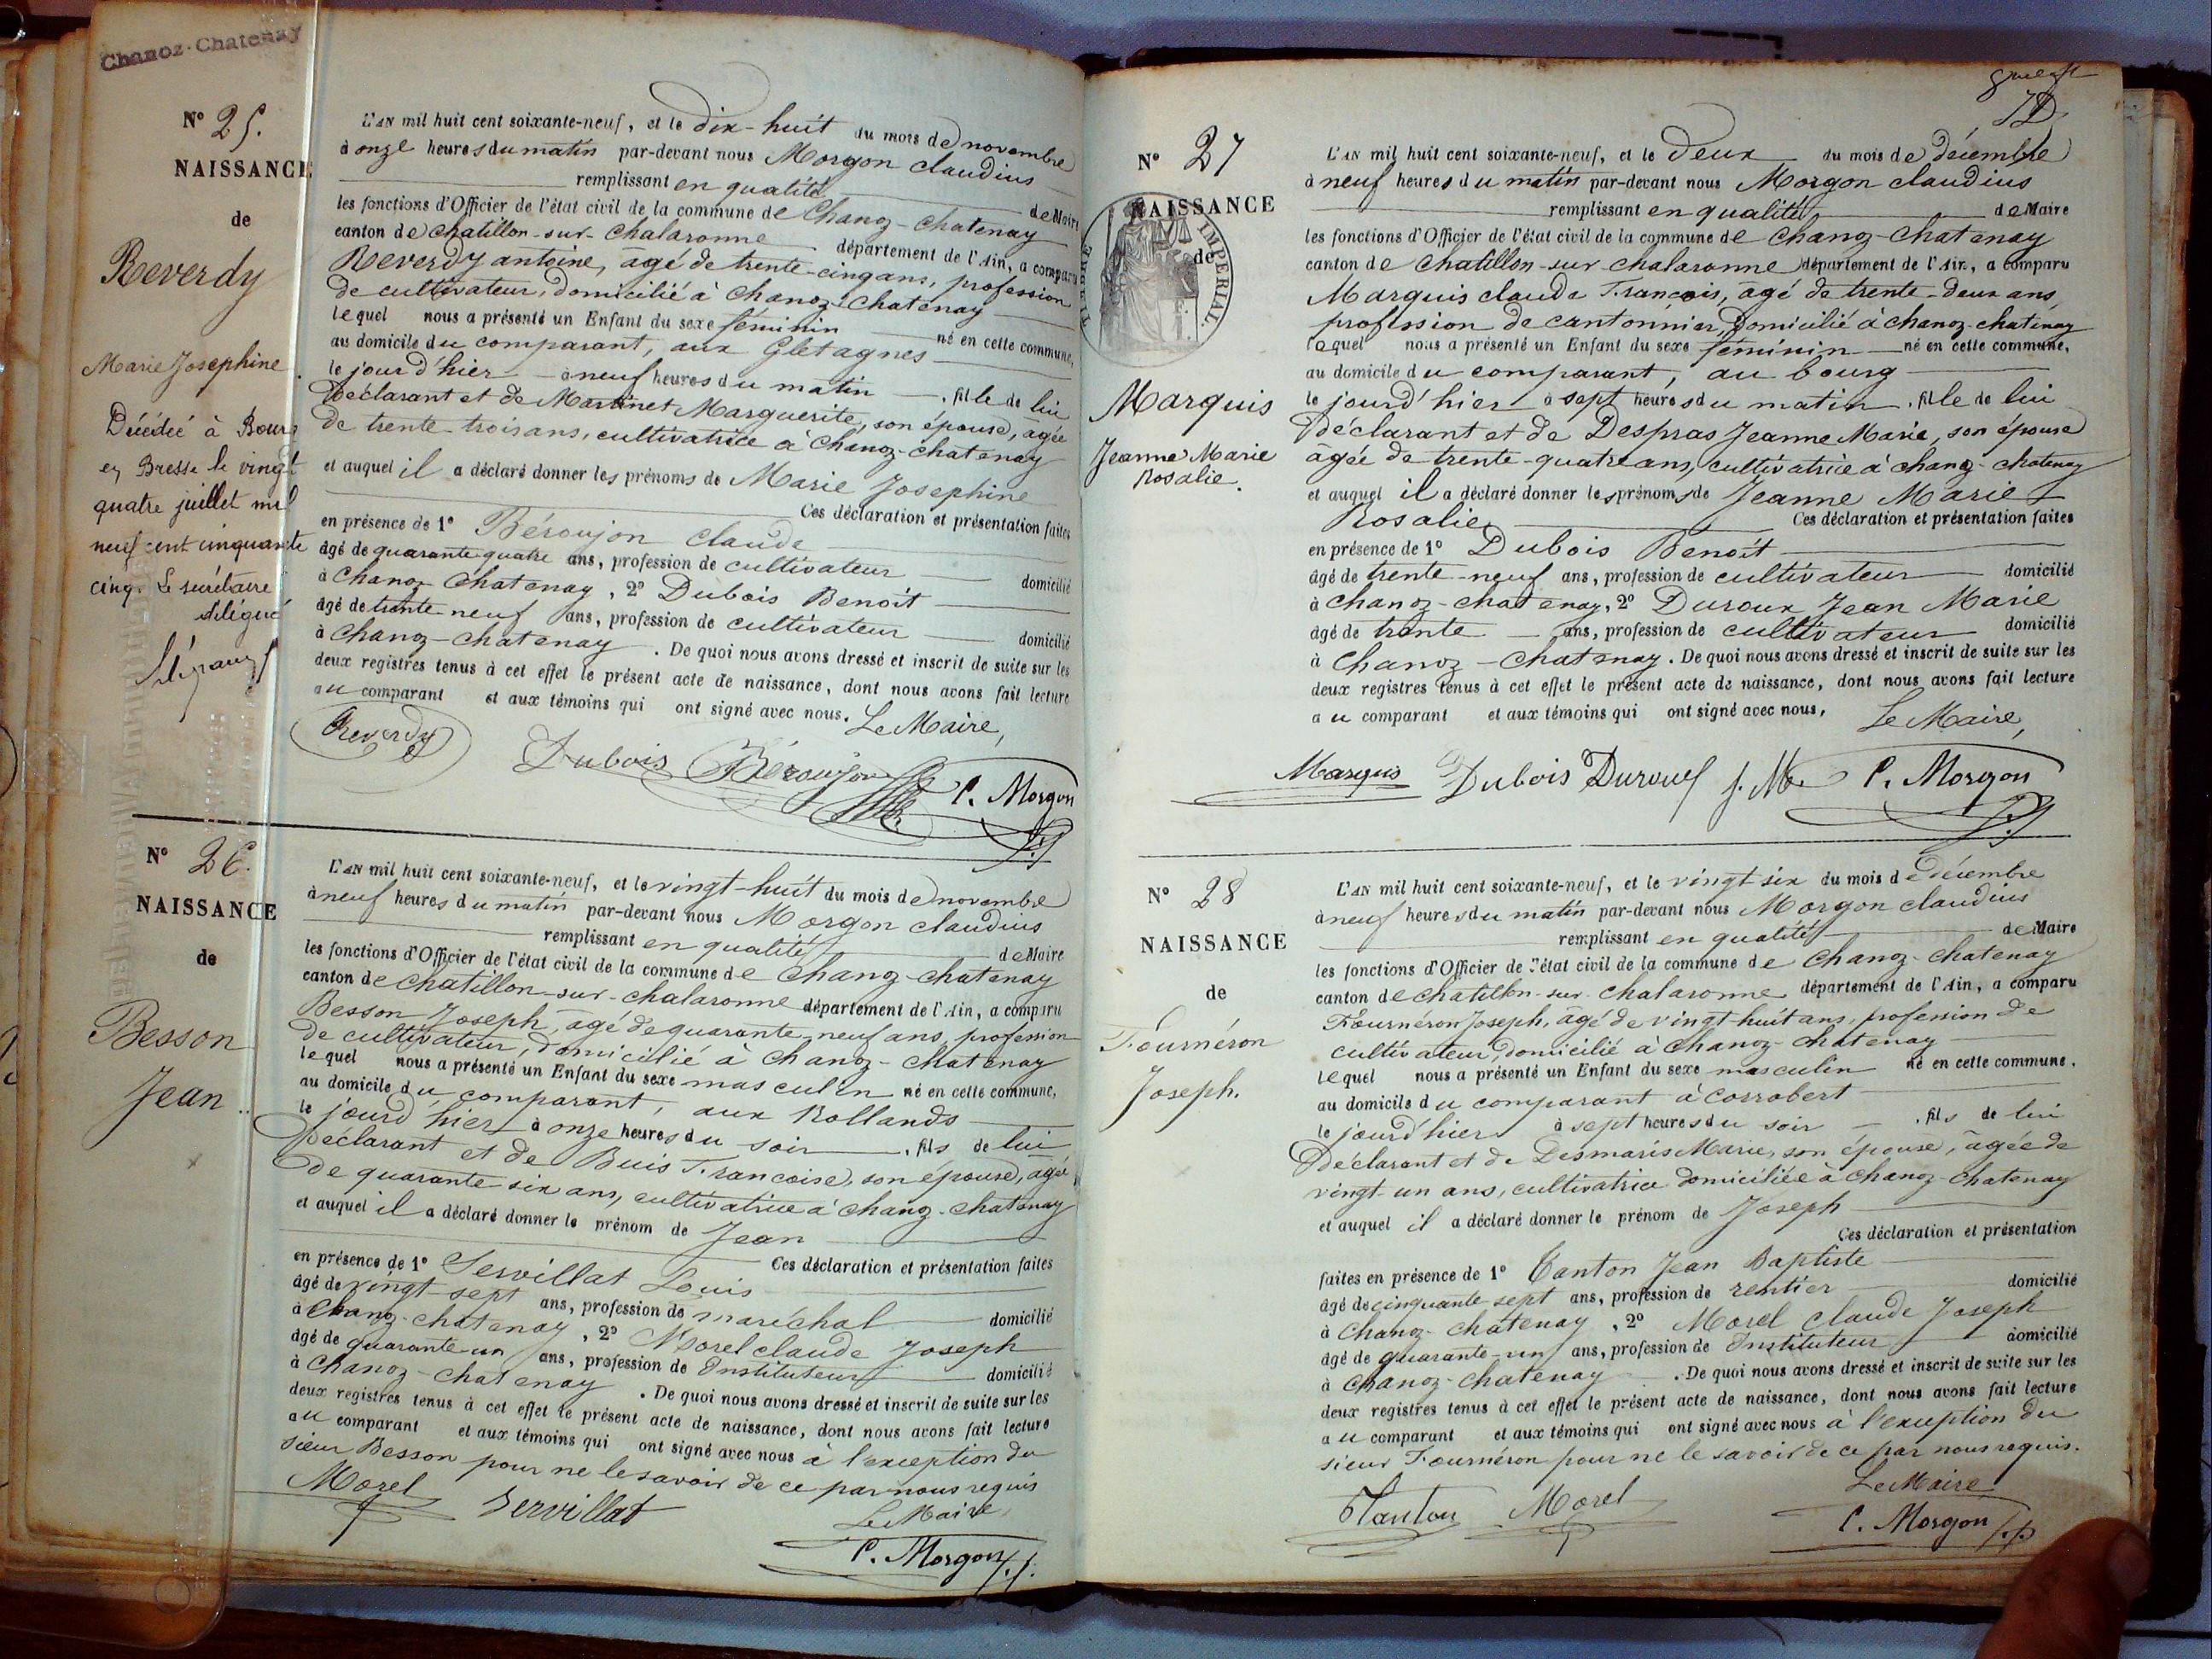 Chanoz-Chatenay
Nº 25.
NAISSANCE
de
Reverdy
Marie Josephine
Décédée à Bourg
en Bresse le vingt
quatre juillet mil
neuf cent cinquante
cinq. Le secrétaire
délégué
L'AN mil huit cent soixante-neuf, et le dix-huit du mois de novembre
à onze heures du matin par-devant nous Morgon claudius
remplissant en qualité de Maire
les fonctions d'Officier de l'état civil de la commune de Chanoz-chatenay
canton de chatillon-sur-chalaronne département de l'Ain, a comparu
Reverdy antoine, agé de trente-cinq ans, profession
de cultivateur, domicilié à chanoz-chatenay
lequel nous a présenté un Enfant du sexe féminin né en cette commune,
au domicile du comparant, aux Gletagnes
le jour d'hier à neuf heures du matin, fille de lui
Déclarant et de Martinet Marguerite, son épouse, agée
de trente-trois ans, cultivatrice à Chanoz-chatenay
et auquel il a déclaré donner les prénoms de Marie Josephine
Ces déclaration et présentation faites
en présence de 1º Béroujon claude
âgé de quarante quatre ans, profession de cultivateur domicilié
à Chanoz Chatenay, 2º Dubois Benoit
âgé de trente neuf ans, profession de cultivateur domicilié
à Chanoz-chatenay. De quoi nous avons dressé et inscrit de suite sur les
deux registres tenus à cet effet le présent acte de naissance, dont nous avons fait lecture
au comparant et aux témoins qui ont signé avec nous. Le Maire,
Reverdy Dubois Béroujon C. Morgon
Nº 26.
NAISSANCE
de
Besson
Jean
L'AN mil huit cent soixante-neuf, et le vingt-huit du mois de novembre
à neuf heures du matin par-devant nous Morgon claudius
remplissant en qualité de Maire
les fonctions d'Officier de l'état civil de la commune de Chanoz-chatenay
canton de chatillon-sur-chalaronne département de l'Ain, a comparu
Besson Joseph, agé de quarante-neuf ans, profession
de cultivateur, domicilié à chanoz-chatenay
lequel nous a présenté un Enfant du sexe masculin né en cette commune,
au domicile du comparant, aux Rollands
le jour d'hier à onze heures du soir, fils de lui
Déclarant et de Buis Francoise, son épouse, agée
de quarante six ans, cultivatrice à chanoz-chatenay
et auquel il a déclaré donner le prénom de Jean
Ces déclaration et présentation faites
en présence de 1º Servillat Louis
âgé de vingt-sept ans, profession de maréchal domicilié
à Chanoz-chatenay, 2º Morel claude Joseph
âgé de quarante-un ans, profession de Instituteur domicilié
à Chanoz-chatenay. De quoi nous avons dressé et inscrit de suite sur les
deux registres tenus à cet effet le présent acte de naissance, dont nous avons fait lecture
au comparant et aux témoins qui ont signé avec nous à l'exception du
sieur Besson pour ne le savoir de ce par nous requis
Morel Servillat Le Maire,
C. Morgon
Nº 27
NAISSANCE
de
TIMBRE IMPERIAL.
Marquis
Jeanne Marie
Rosalie.
L'AN mil huit cent soixante-neuf, et le Deux du mois de décembre
à neuf heures du matin par-devant nous Morgon claudius
remplissant en qualité de Maire
les fonctions d'Officier de l'état civil de la commune de Chanoz-chatenay
canton de Chatillon-sur-chalaronne département de l'Ain, a comparu
Marquis claude Francois, agé de trente-deux ans,
profession de cantonnier, domicilié à chanoz-chatenay
lequel nous a présenté un Enfant du sexe féminin né en cette commune,
au domicile du comparant, au bourg
le jour d'hier à sept heures du matin, fille de lui
Déclarant et de Despras Jeanne Marie, son épouse
agée de trente-quatre ans, cultivatrice à chanoz-chatenay
et auquel il a déclaré donner les prénoms de Jeanne Marie
Rosalie Ces déclaration et présentation faites
en présence de 1º Dubois Benoit
âgé de trente-neuf ans, profession de cultivateur domicilié
à Chanoz-chatenay, 2º Duroux Jean Marie
âgé de trente ans, profession de cultivateur domicilié
à Chanoz-Chatenay. De quoi nous avons dressé et inscrit de suite sur les
deux registres tenus à cet effet le présent acte de naissance, dont nous avons fait lecture
au comparant et aux témoins qui ont signé avec nous, Le Maire,
Marquis Dubois Duroux J. M. C. Morgon
Nº 28
NAISSANCE
de
Fournéron
Joseph.
L'AN mil huit cent soixante-neuf, et le vingt six du mois de décembre
à neuf heures du matin par-devant nous Morgon claudius
remplissant en qualité de Maire
les fonctions d'Officier de l'état civil de la commune de Chanoz-Chatenay
canton de chatillon-sur-chalaronne département de l'Ain, a comparu
Fournéron Joseph, agé de vingt-huit ans, profession de
cultivateur, domicilié à chanoz-chatenay
lequel nous a présenté un Enfant du sexe masculin né en cette commune.
au domicile du comparant à Corrobert
le jour d'hier à sept heures du soir, fils de lui
Déclarant et de Desmaris Marie, son épouse, agée de
vingt-un ans, cultivatrice domiciliée à Chanoz-Chatenay
et auquel il a déclaré donner le prénom de Joseph
Ces déclaration et présentation
faites en présence de 1º Tanton Jean Baptiste
âgé de cinquante sept ans, profession de rentier domicilié
à Chanoz-chatenay, 2º Morel claude Joseph
âgé de quarante-un ans, profession de Instituteur domicilié
à Chanoz-Chatenay. De quoi nous avons dressé et inscrit de suite sur les
deux registres tenus à cet effet le présent acte de naissance, dont nous avons fait lecture
au comparant et aux témoins qui ont signé avec nous à l'exception du
sieur Fournéron pour ne le savoir de ce par nous requis.
Le Maire
Tanton Morel C. Morgon